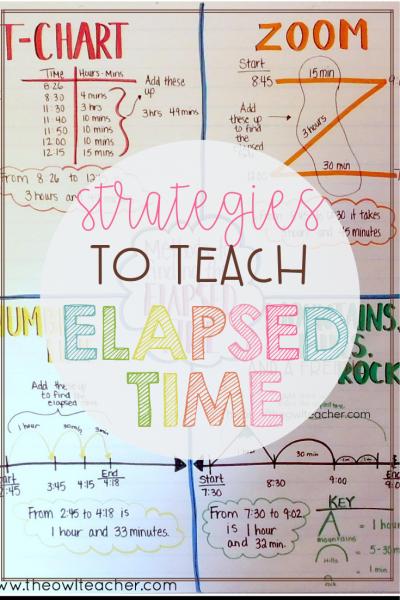 T-CHART
TIME Hours-Mins
8:26
8:30 4 mins
11:30 3 hrs
11:40 10 mins
11:50 10 mins
12:00 10 mins
12:15 15 mins
Add these
up
3 hrs 49 mins
From 8:26 to 12
3 hours an
ZOOM
Start
8:45
15 min
Add
these up
to find
the
elapsed
3 hours
30 min
30 it takes
minutes
strategies
TO TEACH
ELAPSED
TIME
Add the
to find
elapsed
1 hour
30 min
3 min
Start
2:45
3:45
4:15
End
4:18
From 2:45 to 4:18 is
1 hour and 33 minutes.
ROCK
theowlteacher.com
30 min
Start
7:30
8:30
9:00
From 7:30 to 9:02
is 1 hour
and 32 min.
KEY
= 1 hour
mountains
= 5-30
Hills
= 1 min
rock
www.theowlteacher.com